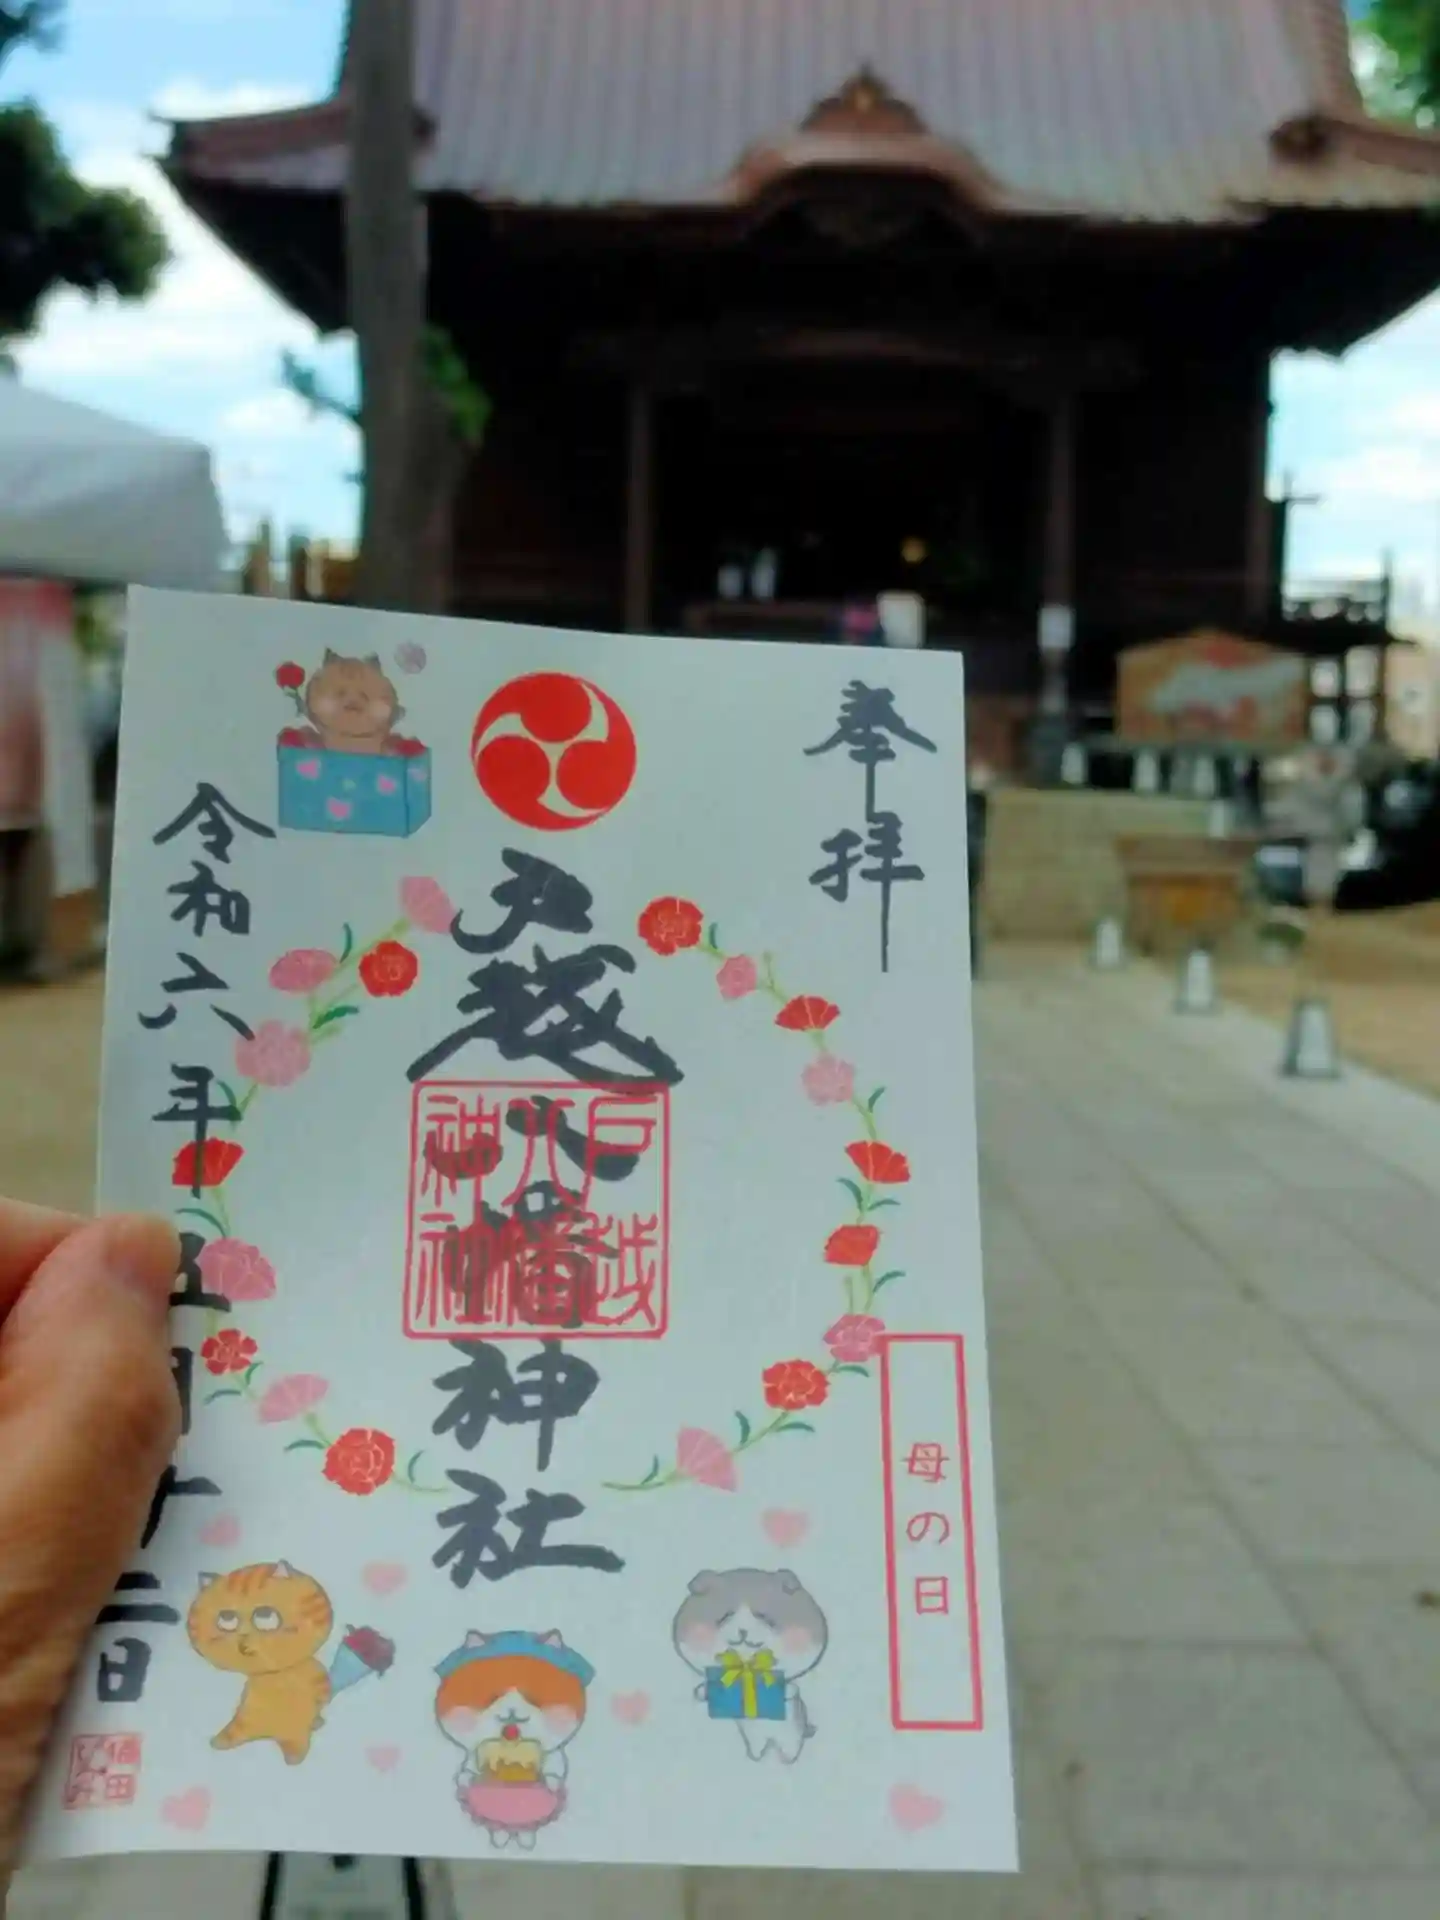 奉拝
戸越八幡神社
戸越
八幡
神社
母の日
令和六年五月十二日